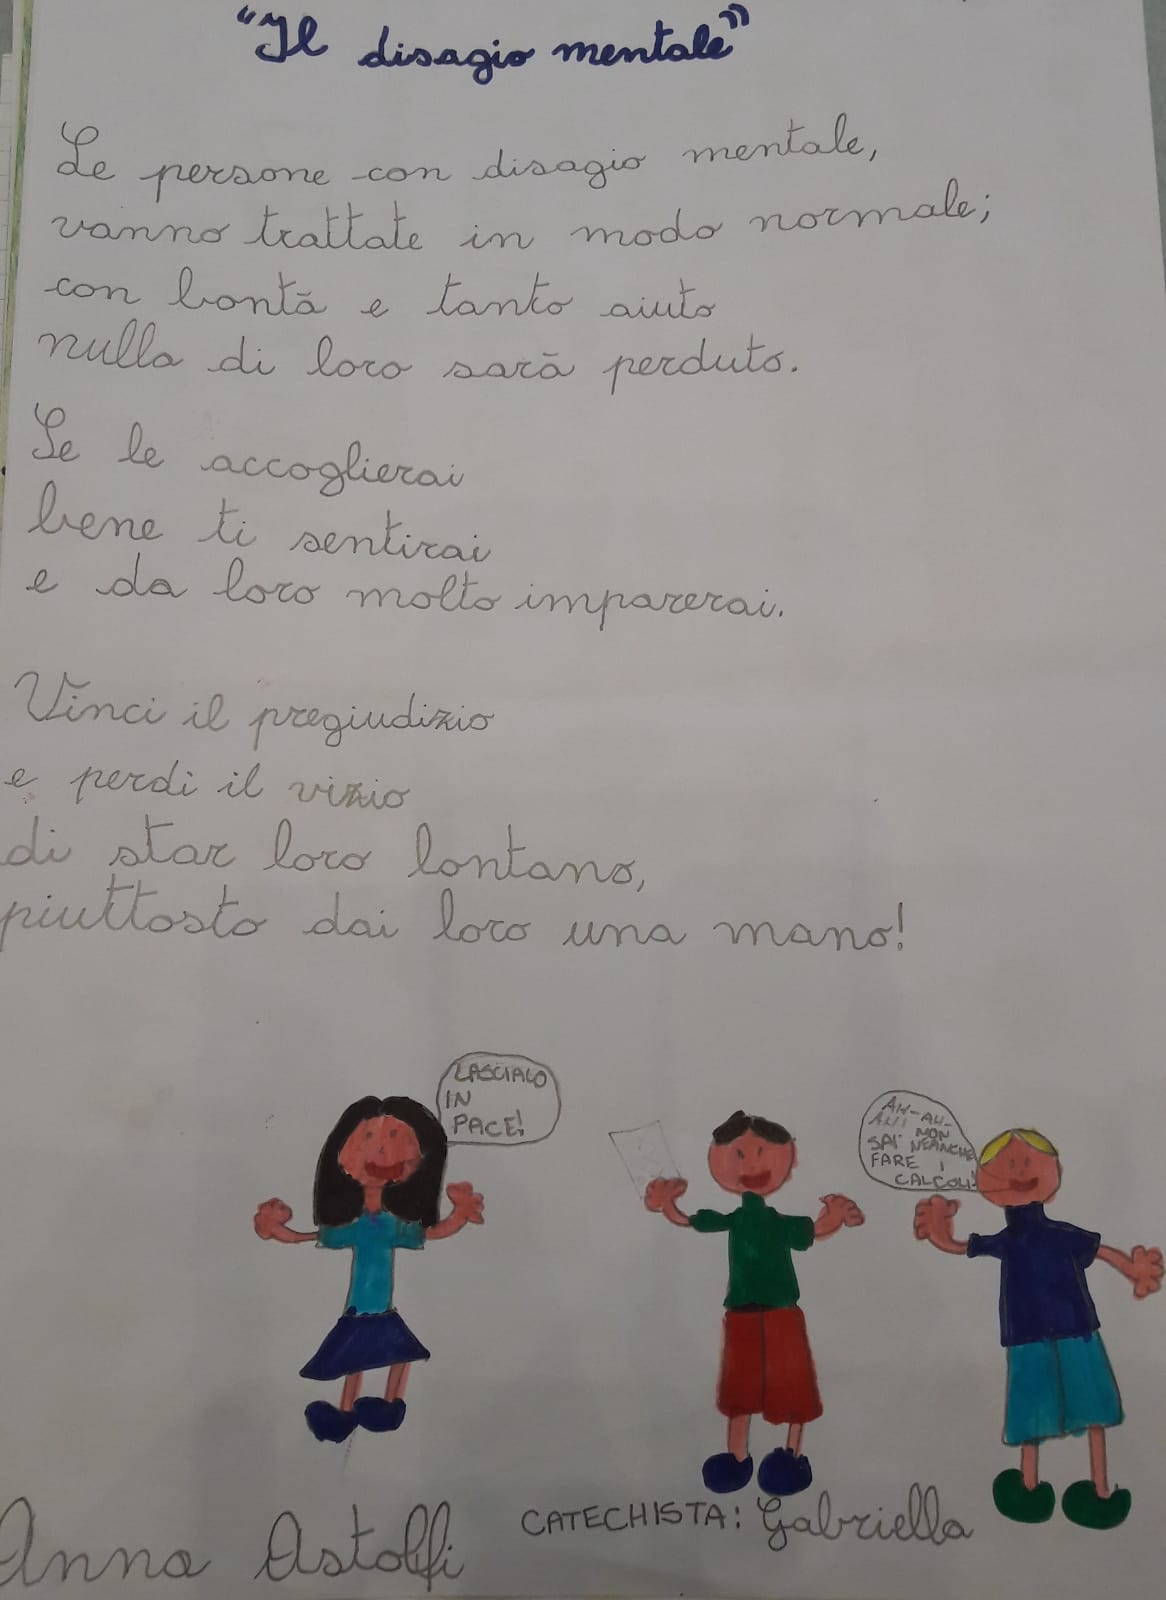 "Il disagio mentale"
Le persone con disagio mentale,
vanno trattate in modo normale;
con bontà e tanto aiuto
nulla di loro sarà perduto.
Se le accoglierai
bene ti sentirai
e da loro molto imparerai.
Vinci il pregiudizio
e perdi il vizio
di star loro lontano,
piuttosto dai loro una mano!
LASCIALO
IN
PACE!
AH-AH-
AH! NON
SAI NEANCHE
FARE I
CALCOLI!
Anna Astolfi
CATECHISTA: Gabriella